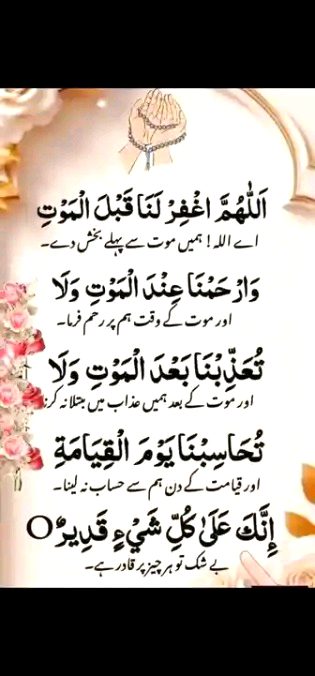 اَللّٰهُمَّ اغْفِرْ لَنَا قَبْلَ الْمَوْتِ
اے اللہ! ہمیں موت سے پہلے بخش دے۔
وَارْحَمْنَا عِنْدَ الْمَوْتِ وَلَا
اور موت کے وقت ہم پر رحم فرما۔
تُعَذِّبْنَا بَعْدَ الْمَوْتِ وَلَا
اور موت کے بعد ہمیں عذاب میں مبتلا نہ کرنا
تُحَاسِبْنَا يَوْمَ الْقِيَامَةِ
اور قیامت کے دن ہم سے حساب نہ لینا۔
اِنَّكَ عَلٰى كُلِّ شَيْءٍ قَدِيْرٌ ○
بے شک تو ہر چیز پر قادر ہے۔